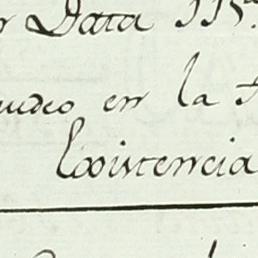 r Data 115
udeo en la
Existencia